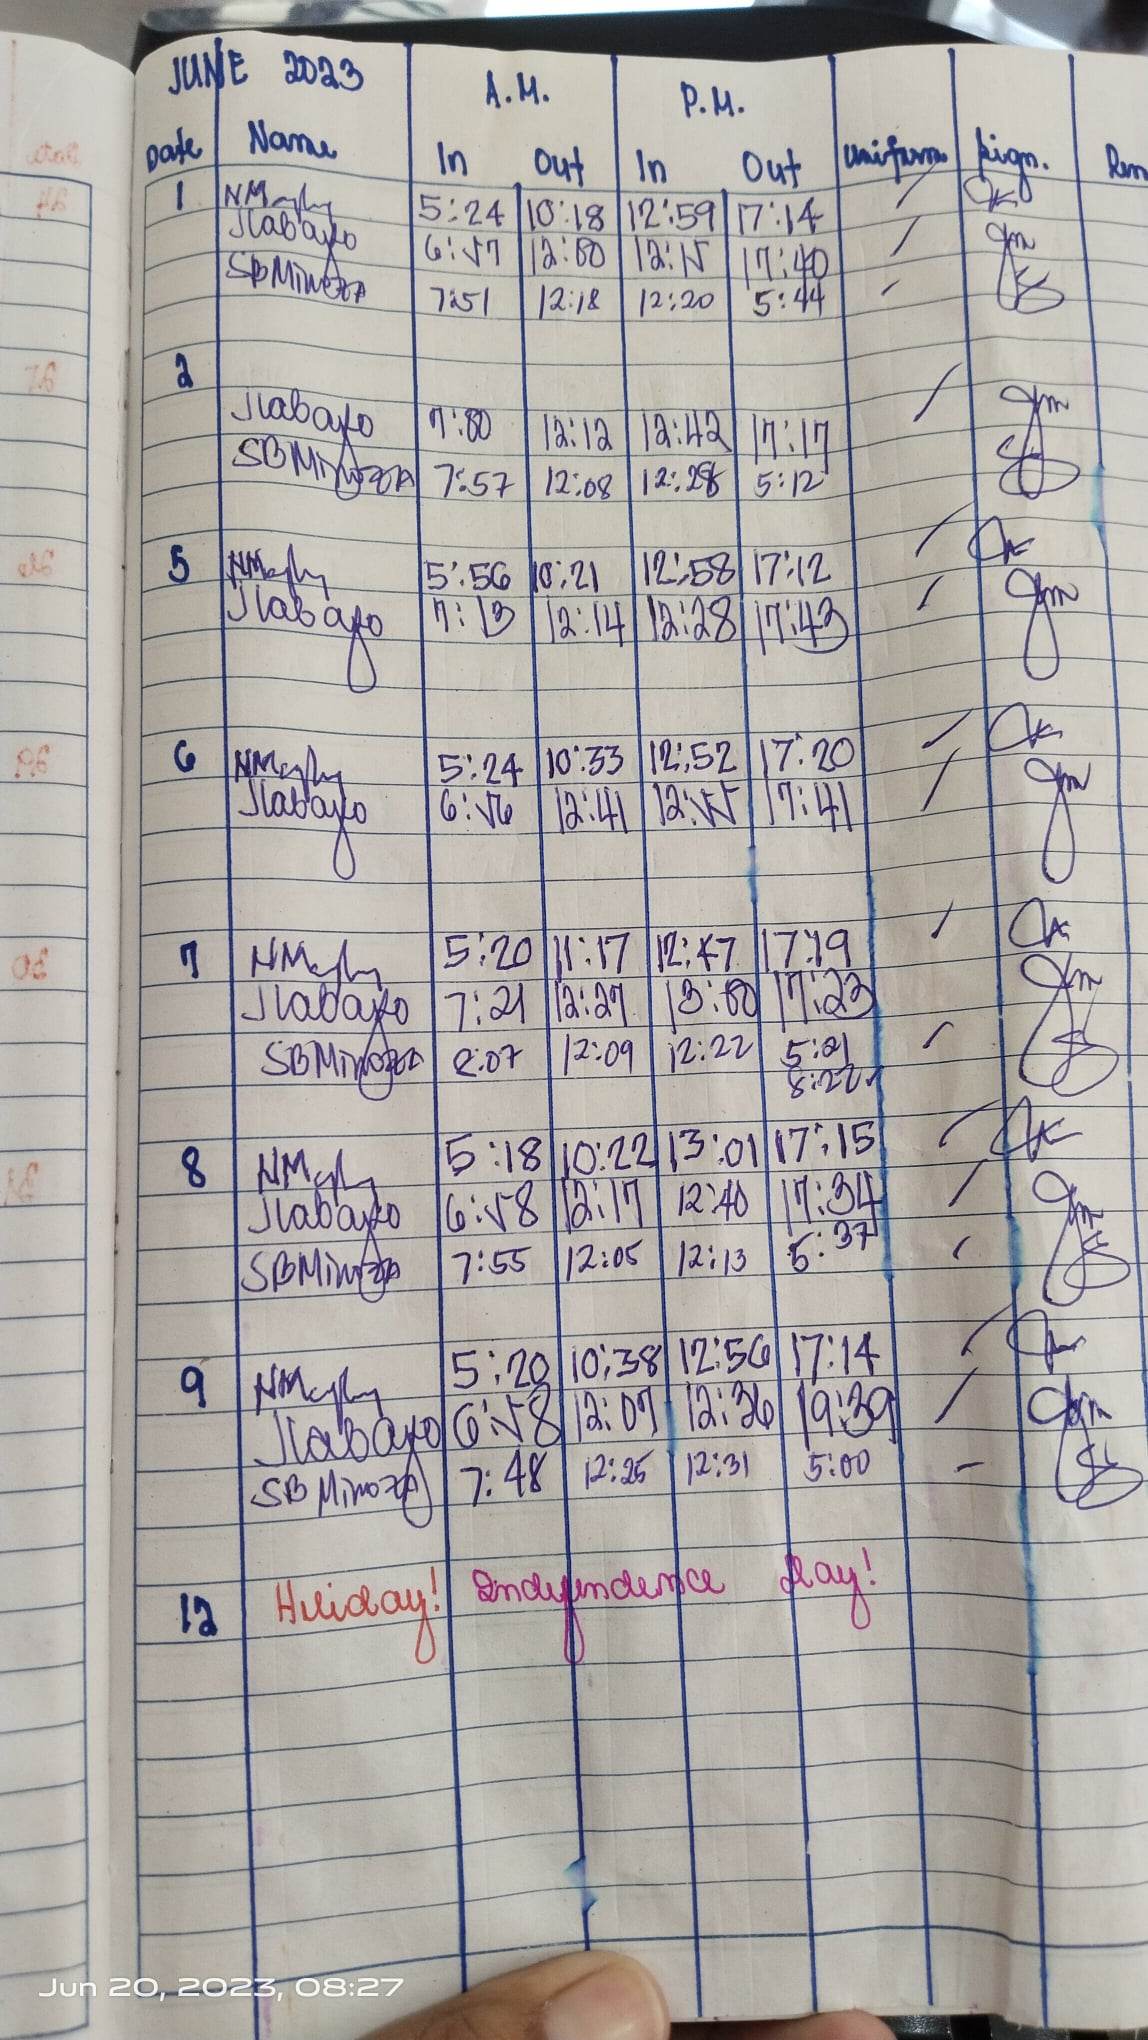 JUNE 2023 A.M. P.M.
Date Name In Out In Out Uniform Sign. Rem
1 5:24 10:18 12:59 17:14
Jlabayo 6:57 12:00 12:15 17:40
SBMinoza 7:51 12:18 12:20 5:44
2
Jlabayo 7:00 12:12 12:42 17:17
SBMinoza 7:57 12:08 12:28 5:12
5 5:56 10:21 12:58 17:12
Jlabayo 7:13 12:14 12:28 17:43
6 5:24 10:33 12:52 17:20
Jlabayo 6:56 12:41 12:55 17:41
7 5:20 11:17 12:47 17:19
Jlabayo 7:21 12:27 13:00 17:23
SBMinoza 8:07 12:09 12:22 5:21
8:22
8 5:18 10:22 13:01 17:15
Jlabayo 6:58 12:17 12:40 17:34
SBMinoza 7:55 12:05 12:13 5:37
9 5:20 10:38 12:56 17:14
Jlabayo 6:58 12:07 12:36 19:39
SB Minoza 7:48 12:25 12:31 5:00
12 Holiday! Independence Day!
Jun 20, 2023, 08:27